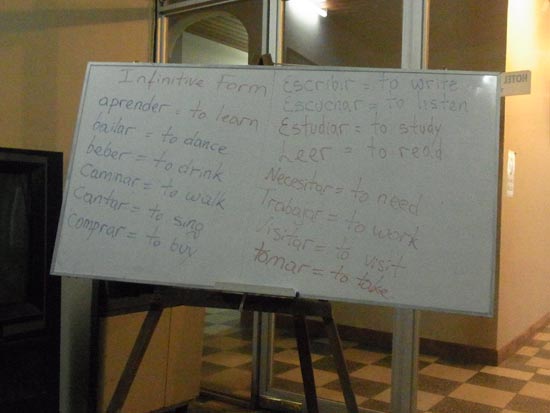 Infinitive Form
aprender = to learn
bailar = to dance
beber = to drink
Caminar = to walk
Cantar = to sing
comprar = to buy
Escribir = to write
Escuchar = to listen
Estudiar = to study
Leer = to read
Necesitar = to need
Trabajar = to work
Visitar = to visit
tomar = to take
HOTEL